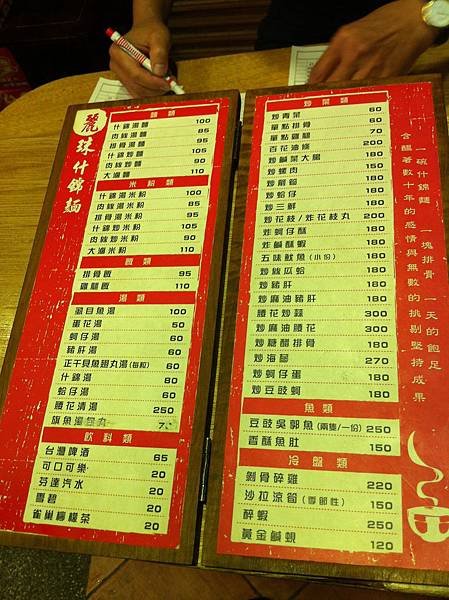 麗珠什錦麵
麵類
什錦湯麵 100
肉絲湯麵 85
排骨湯麵 95
什錦炒麵 105
肉絲炒麵 90
大滷麵 110
米粉類
什錦湯米粉 100
肉絲湯米粉 85
排骨湯米粉 95
什錦炒米粉 105
肉絲炒米粉 90
大滷米粉 110
飯類
排骨飯 95
雞腿飯 110
湯類
虱目魚湯 100
蛋花湯 50
蚵仔湯 80
豬肝湯 60
正干貝魚翅丸湯(每粒) 60
什錦湯 80
蛤仔湯 60
腰花清湯 250
旗魚 丸
飲料類
台灣啤酒 65
可口可樂 20
芬達汽水 20
雪碧 20
雀巢檸檬茶 20
炒菜類
炒青菜 60
單點排骨 60
單點雞腿 70
百花油條 200
炒鹹菜大腸 180
炒螺肉 150
炒箭筍 180
炒蛤仔 180
炒三鮮 180
炒花枝/炸花枝丸 200
炸蚵仔酥 180
炸鹹酥蝦 180
五味魷魚(小份) 180
炒絲瓜蛤 180
炒豬肝 180
炒麻油豬肝 180
腰花炒蒜 300
炒麻油腰花 300
炒糖醋排骨 180
炒海參 270
炒蚵仔蛋 180
炒豆豉蚵 180
魚類
豆豉吳郭魚(兩隻/一份) 250
香酥魚肚 150
冷盤類
剝骨碎雞 220
沙拉涼筍(季節性) 150
醉蝦 250
黃金鹹蜆 120
一碗什錦麵 一塊排骨 一天的飽足
含醞著數十年的感情與無數的挑剔堅持成果